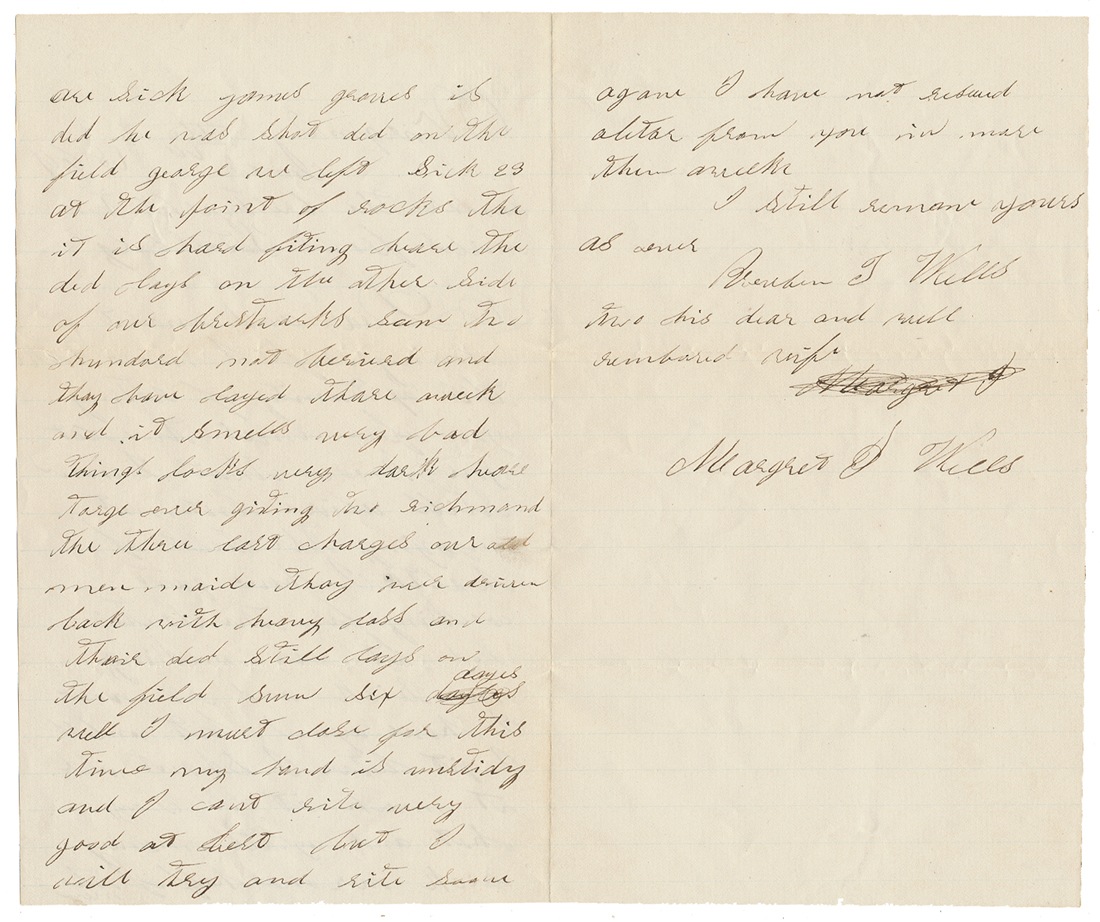 are sick james graves is
ded he was shot ded on the
field george w left sick 23
at the point of rocks the
it is hard fiting heare the
ded lays on the other side
of our brestwarks som two
hundord not beried and
thay have layed thare aweek
and it smells very bad
things locks very dark heare
targe over giting two richmand
the three last charges our
men maide thay wer driven
back with heavy loss and
thair ded still lays on
the field sum six dayes
well I must close for this
time my hand is unstidy
and I cant rite very
good at best but I
will try and rite soone
agane I have not resived
aletar from you in more
then aweeke
I still remane yours
as ever
Reeuben T Wells
two his dear and well
rembared wife
Margret J
Margret J Wells